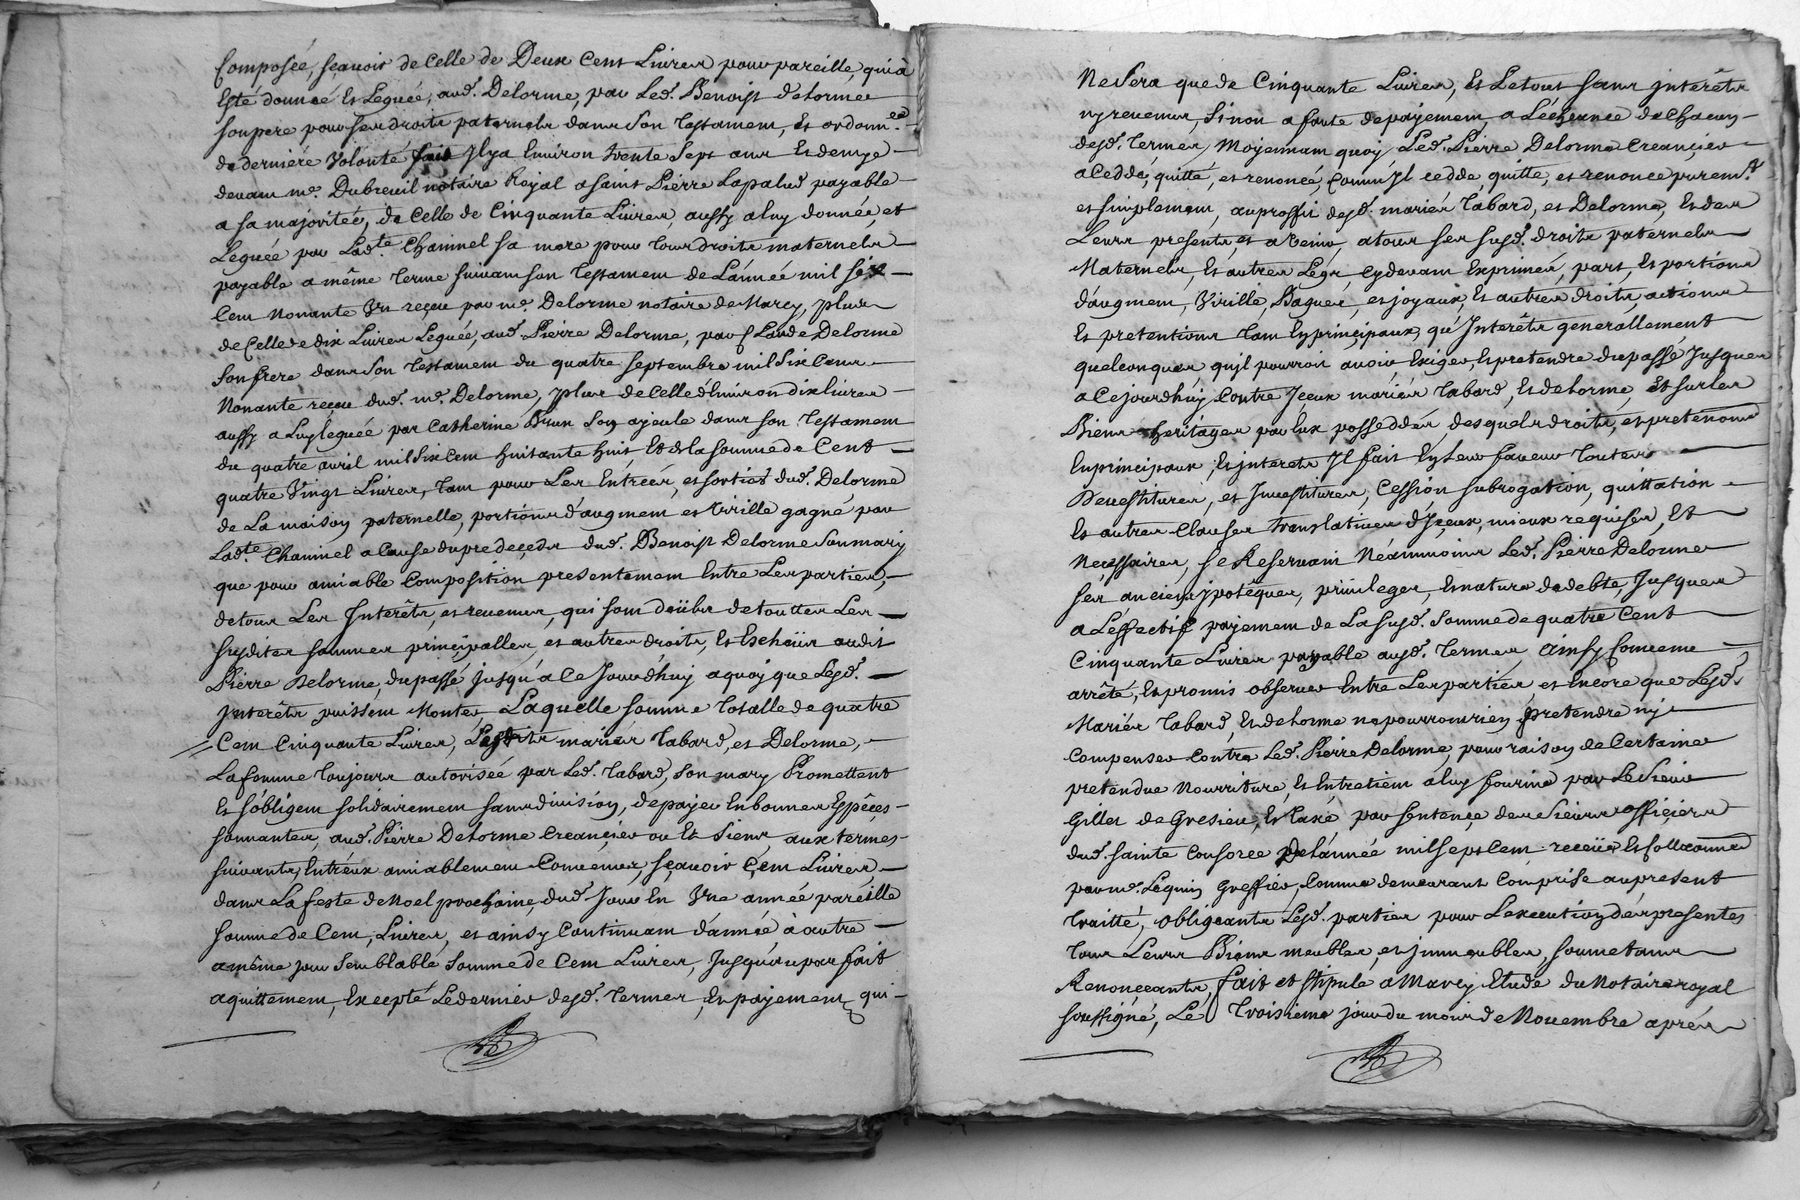 Composée, sçavoir de Celle de Deux Cent Livres pour pareille, qui a
Esté donneé Et Leguée, aud. Delorme, par Led. Benoist Delorme
son pere pour ses droits paternels dans son Testament, et ordonn.ce
de derniére Volonté fait Il y a Environ trente Sept ans Et demye
devant me. Dubreuil notaire Royal a saint Pierre Lapalud payable
a sa majoritée, de Celle de Cinquante Livres, aussy a luy donnée, et
Leguée par Lad.te Chaninel sa mere pour tous droits maternels
payable a même terme suivant son Testament de L'année mil six
Cent Nonante Un reçeu par me. Delorme notaire de Marcy, plus
de Celle de dix Livres Leguée, aud. Pierre Delorme, par Claude Delorme
son frere dans son Testament du quatre septembre mil Six Cens
Nonante reçeu dud. me. Delorme, plus de Celle d'Environ dix livres
aussy a Luy leguée par Catherine Brun son ayeule dans son Testament
du quatre avril mil Six Cent huitante huit Et de la somme de Cent
quatre Vingt Livres, tant pour Les Entréés, et sorties dud. Delorme
de La maison paternelle, portions d'augment et Virille gagné par
Lad.te Chaninel a Cause du predeçedé dud. Benoist Delorme Son mary
que pour amiable Composition presentement Entre Les parties,
de tous Les Interêts, et revenus, qui sont deübs de toutes Les
susdites sommes prinçipalles, et autres droits, Et Escheüs audit
Pierre Delorme, du passé jusqu'á Ce Jourd'huy a quoy que Lesd.
Interêts puissent Monter, Laquelle somme totalle de quatre
Cent Cinquante Livres, Lesdits mariés Tabard, et Delorme,
La femme toujours autorisée par Led. Tabard, son mary Promettent
Et s'obligent solidairement sans division, de payer En bonnes Espêces
sonnantes, aud. Pierre Delorme Creançier ou Es Siens aux termes
suivants, Entreux amiablement Convenus, sçavoir Cent Livres,
dans La feste de Noel prochaine, dud. Jour En Une année pareille
somme de Cent, Livres, et ainsy Continuant d'année à autre
a même jour Semblable Somme de Cent Livres, Jusqu'au parfait
aquittement, Excepté Le dernier desd. Termes, Et payement qui
Ne Sera que de Cinquante Livres, Et Le tout sans interêts
ny revenus, Sinon a faute de payement a L'écheance de Chacun
desd. Termes, Moyennant quoy Led. Pierre Delorme Creançier
a Ceddé, quitté, et renoncé Comm'Il cedde, quitte, et renonce purem.t
et simplement, au proffit desd. mariés Tabard, et Delorme, Et des
Leurs presents, et a Venir, a tous ses susd. droits paternels
Maternels, Et autres Legs, Cy devant Exprimés, parts, Et portions
d'augment, Virille, Bagues, et joyaux, Et autres droits, actions
Et pretentions tant En prinçipaux, qu'Interêts generallement
quelconques qu'il pourroit avoir Exiger, Et pretendre du passé Jusques
a Ce jourd'huy Contre Iceux mariés Tabard, Et delorme, Et sur les
Biens heritages par Eux posseddés, desquels droits, et pretentions
En prinçipaux, Et interets Il fait En Leur faveur toutes
Devestitures, et Investitures, Cession subrogation, quittation
Et autres Clauses translatives d'Iceux, mieux requises, Et
Neçessaires, se Reservant Néanmoins Led. Pierre Delorme
ses anciens ypotêques, priuileges, Et nature de debte, Jusques
a L'effectif payement de La susd. Somme de quatre Cent
Cinquante Livres payable ausd. Termes, Ainsy Convenu
arrêté, Et promis observer Entre Les parties et Encore que Lesd.
Mariés Tabard, Et delorme ne pourront rien pretendre ny
Compenser Contre Led. Pierre Delorme, pour raison de Certaine
pretendue Nourriture, Et Entretient a luy fournie par Le Sieur
Gillet de Gresieu, Et taxé par sentençe des Sieurs offiçiers
dud. Sainte Consorce De L'année mil sept Cent
par me. Lequin Greffier, Comme demeurant Comprise au present
traitté, obligeants Lesd. parties pour L'execution des presentes
tous Leurs Biens meubles, et immeubles, soumetans
Renonçeants, fait et stipulé a Marcy Etude du Notaire royal
soussigné, Le Troisieme jour du mois de Novembre aprés